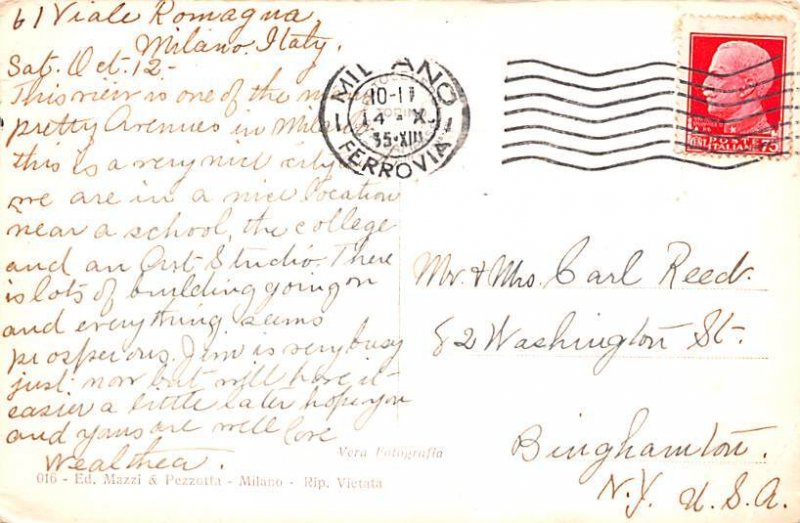 61 Viale Romagna
Milano. Italy.
Sat. Oct. 12-
This view is one of the
pretty Avenues in
this is a very nice city
we are in a nice location
near a school, the college
and an Art Studio. There
is lots of building going on
and everything seems
prosperous. Jim is very busy
just now but will have it
easier a little later hope you
and yours are well Love
Wealthea.
MILANO
10-11
14 - X
35·XIII
FERROVIA
POSTE
ITALIANE
CENT 75
Mr. & Mrs. Carl Reed.
82 Washington St.
Binghamton.
N.Y. U.S.A.
Vera Fotografia
016 - Ed. Mazzi & Pezzotta - Milano - Rip. Vietata